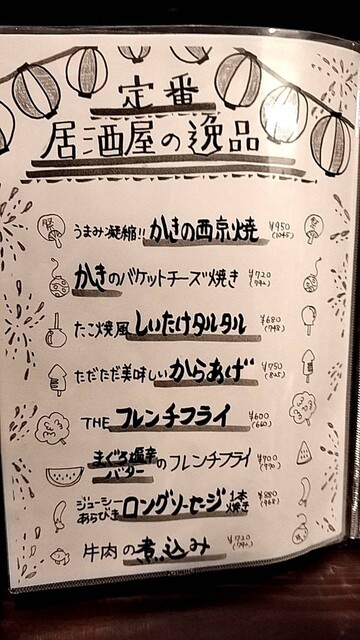 定番
居酒屋の逸品
うまみ凝縮!! かきの西京焼 ¥950 (1045)
かきのバケットチーズ焼き ¥720 (792)
たこ焼風 しいたけタルタル ¥680 (748)
ただただ美味しい からあげ ¥750 (825)
THE フレンチフライ ¥600 (660)
まぐろ塩辛バターのフレンチフライ ¥700 (770)
ジューシーあらびき ロングソーセージ 1本焼き ¥880 (968)
牛肉の煮込み ¥720 (792)